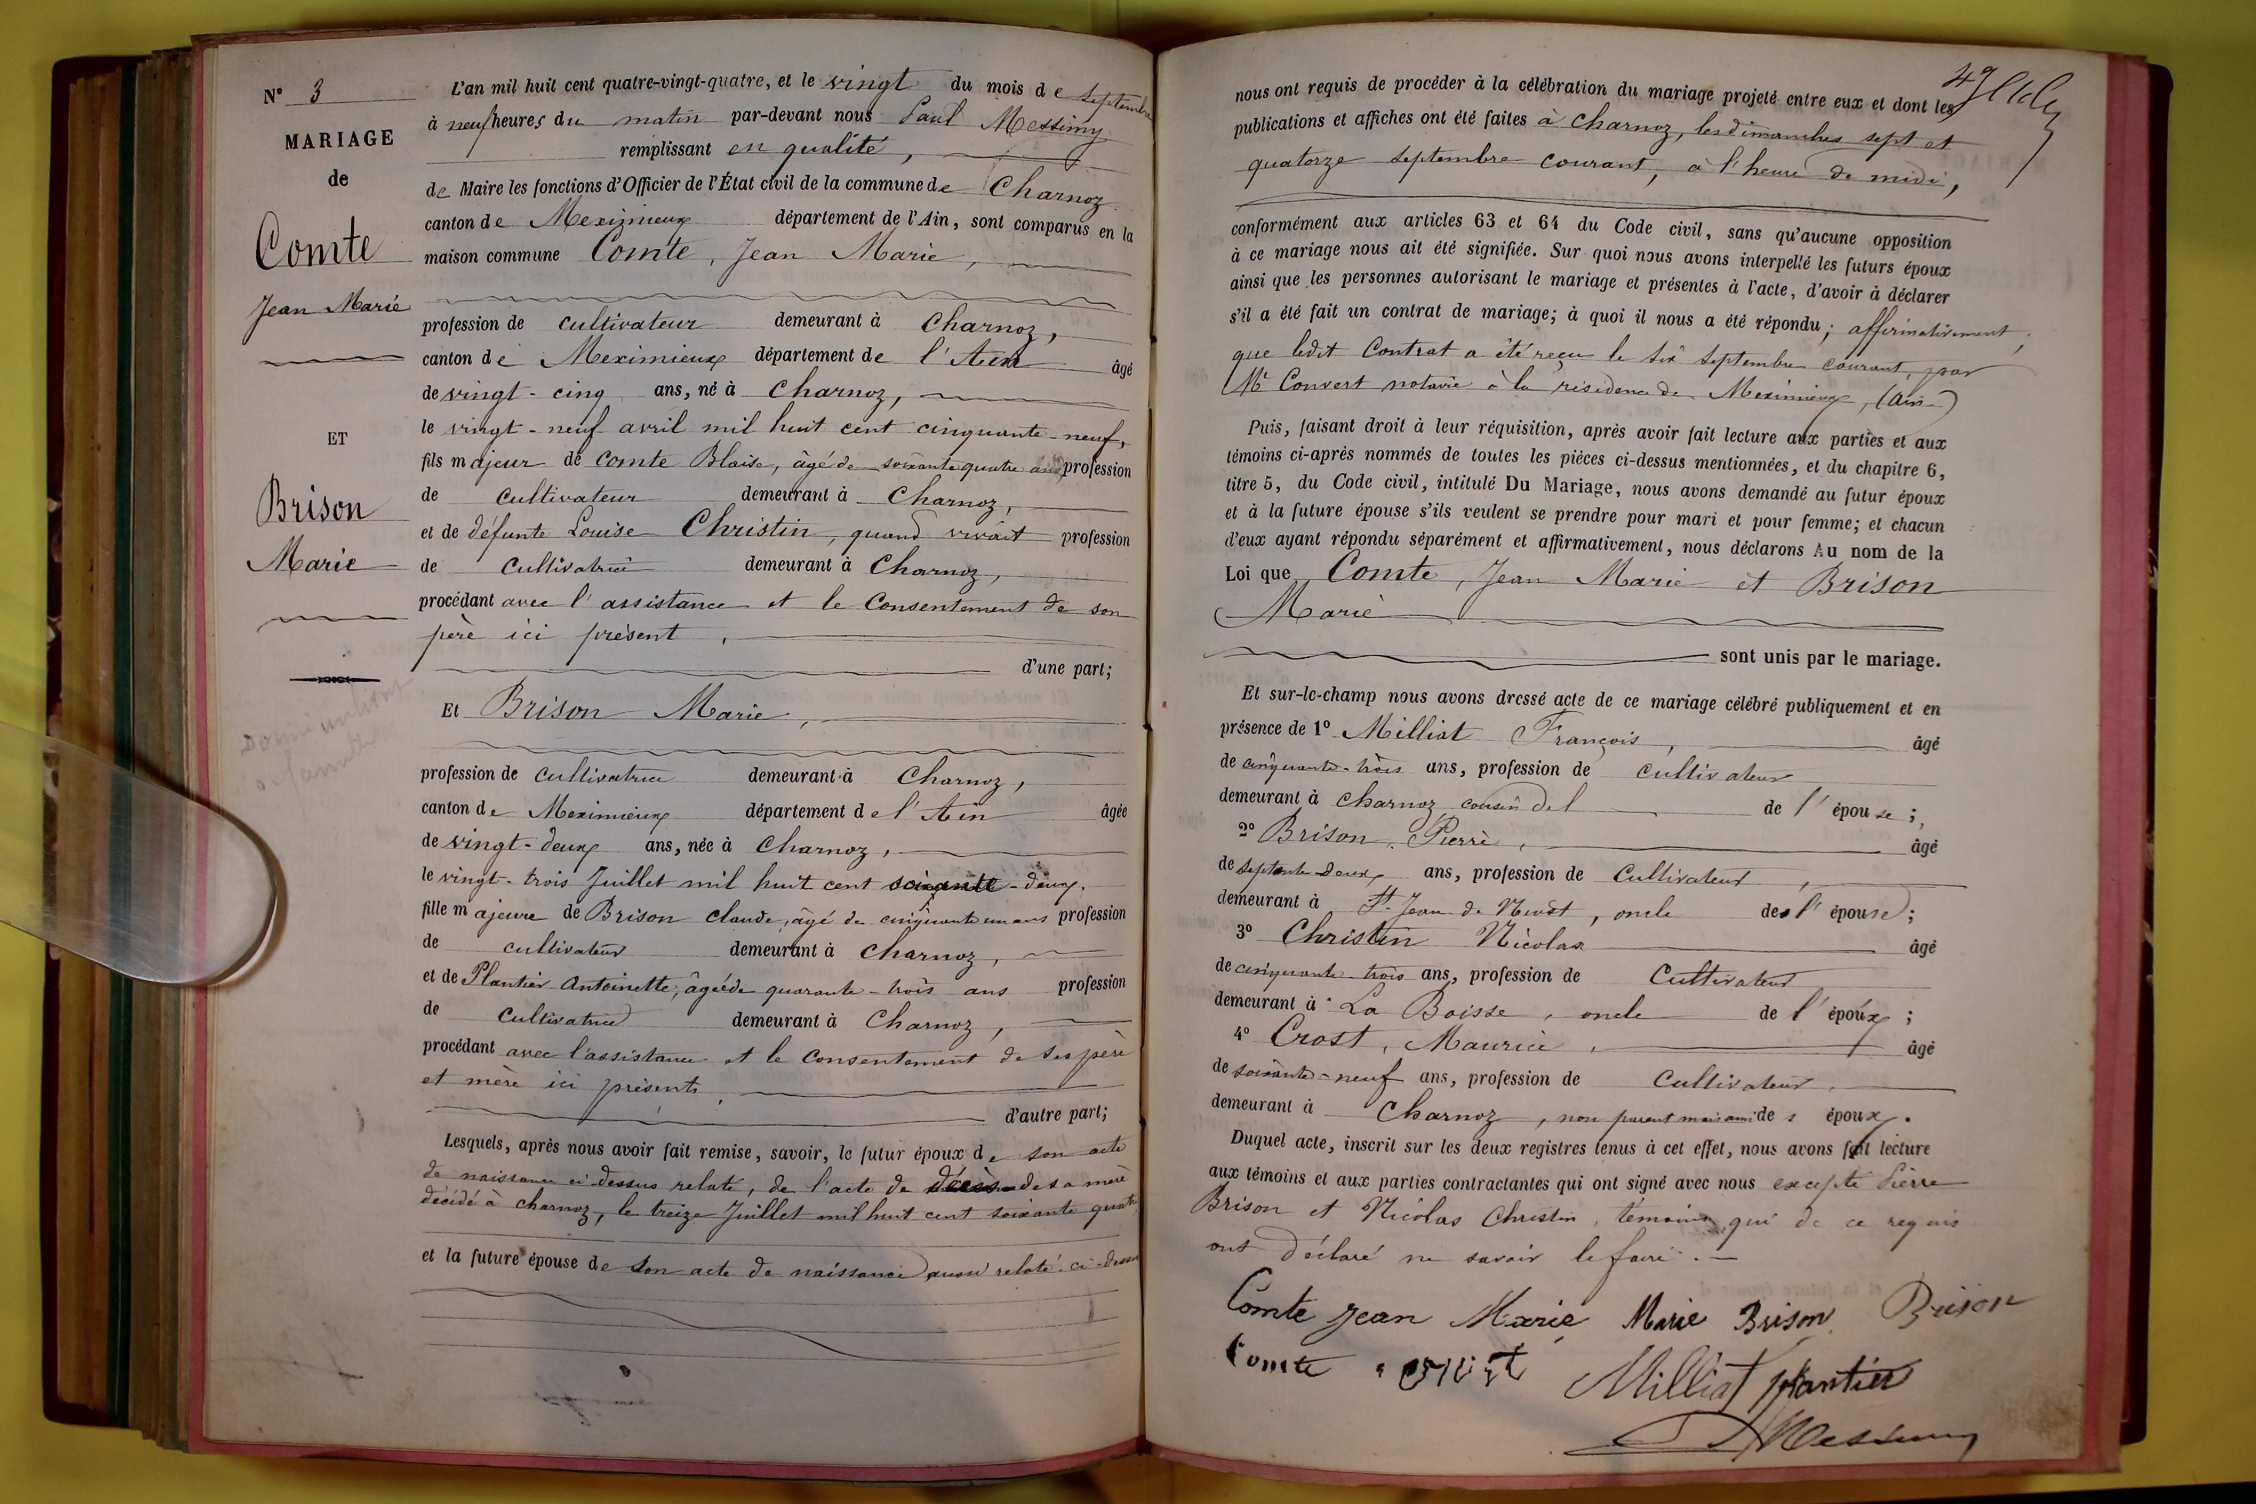 N° 3
MARIAGE
de
Comte
Jean Marie
ET
Brison
Marie
L'an mil huit cent quatre-vingt-quatre, et le vingt du mois de septembre
à neuf heures du matin par-devant nous Paul Messimy
remplissant en qualité,
de Maire les fonctions d'Officier de l'État civil de la commune de Charnoz
canton de Meximieux département de l'Ain, sont comparus en la
maison commune Comte, Jean Marie,
profession de cultivateur demeurant à Charnoz,
canton de Meximieux département de l'Ain âgé
de vingt-cinq ans, né à Charnoz,
le vingt-neuf avril mil huit cent cinquante-neuf,
fils majeur de Comte Blaise, âgé de soixante quatre ans profession
de cultivateur demeurant à Charnoz,
et de défunte Louise Christin, quand vivait profession
de cultivatrice demeurant à Charnoz,
procédant avec l'assistance et le consentement de son
père ici présent,
d'une part;
Et Brison Marie,
profession de cultivatrice demeurant à Charnoz,
canton de Meximieux département de l'Ain âgée
de vingt-deux ans, née à Charnoz,
le vingt-trois Juillet mil huit cent soixante-deux.
fille majeure de Brison Claude, âgé de cinquante un ans profession
de cultivateur demeurant à Charnoz,
et de Plantier Antoinette, âgée de quarante-trois ans profession
de cultivatrice demeurant à Charnoz,
procédant avec l'assistance et le consentement de ses père
et mère ici présents,
d'autre part;
Lesquels, après nous avoir fait remise, savoir, le futur époux de son acte
de naissance ci-dessus relaté, de l'acte de décès de sa mère
décédé à Charnoz, le treize Juillet mil huit cent soixante quatre
et la future épouse de son acte de naissance aussi relaté ci-dessus
nous ont requis de procéder à la célébration du mariage projeté entre eux et dont les
publications et affiches ont été faites à Charnoz, les dimanches sept et
quatorze septembre courant, à l'heure de midi,
conformément aux articles 63 et 64 du Code civil, sans qu'aucune opposition
à ce mariage nous ait été signifiée. Sur quoi nous avons interpellé les futurs époux
ainsi que les personnes autorisant le mariage et présentes à l'acte, d'avoir à déclarer
s'il a été fait un contrat de mariage; à quoi il nous a été répondu; affirmativement,
que ledit Contrat a été reçu le six septembre courant, par
Me Convert notaire à la résidence de Meximieux, (Ain)
Puis, faisant droit à leur réquisition, après avoir fait lecture aux parties et aux
témoins ci-après nommés de toutes les pièces ci-dessus mentionnées, et du chapitre 6,
titre 5, du Code civil, intitulé Du Mariage, nous avons demandé au futur époux
et à la future épouse s'ils veulent se prendre pour mari et pour femme; et chacun
d'eux ayant répondu séparément et affirmativement, nous déclarons Au nom de la
Loi que Comte, Jean Marie et Brison
Marie
sont unis par le mariage.
Et sur-le-champ nous avons dressé acte de ce mariage célébré publiquement et en
présence de 1° Milliat François, âgé
de cinquante-trois ans, profession de cultivateur
demeurant à Charnoz cousin de l'épouse;
2° Brison, Pierre, âgé
de septante-deux ans, profession de cultivateur,
demeurant à St Jean de Niost, oncle de l'épouse;
3° Christin Nicolas âgé
de cinquante-trois ans, profession de cultivateur
demeurant à La Boisse, oncle de l'époux;
4° Crost, Maurice, âgé
de soixante-neuf ans, profession de cultivateur,
demeurant à Charnoz, non parent mais ami des époux.
Duquel acte, inscrit sur les deux registres tenus à cet effet, nous avons fait lecture
aux témoins et aux parties contractantes qui ont signé avec nous excepté Pierre
Brison et Nicolas Christin, témoins qui de ce requis
ont déclaré ne savoir le faire.
Comte Jean Marie Marie Brison Brison
Comte crost Milliat plantier
Messimy